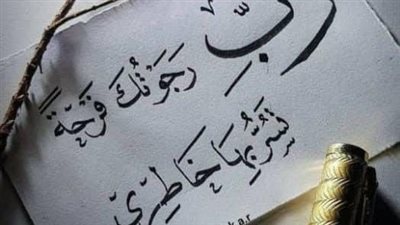 ربِّ رَجَوْتُكَ فَرْحَةً
تَسُرُّ بِهَا خَاطِرِي